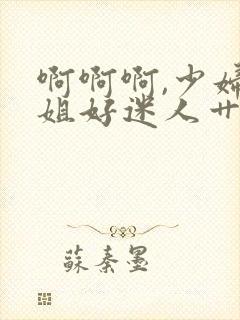 啊啊啊,少婦
姐好迷人卄
蘇秦墨